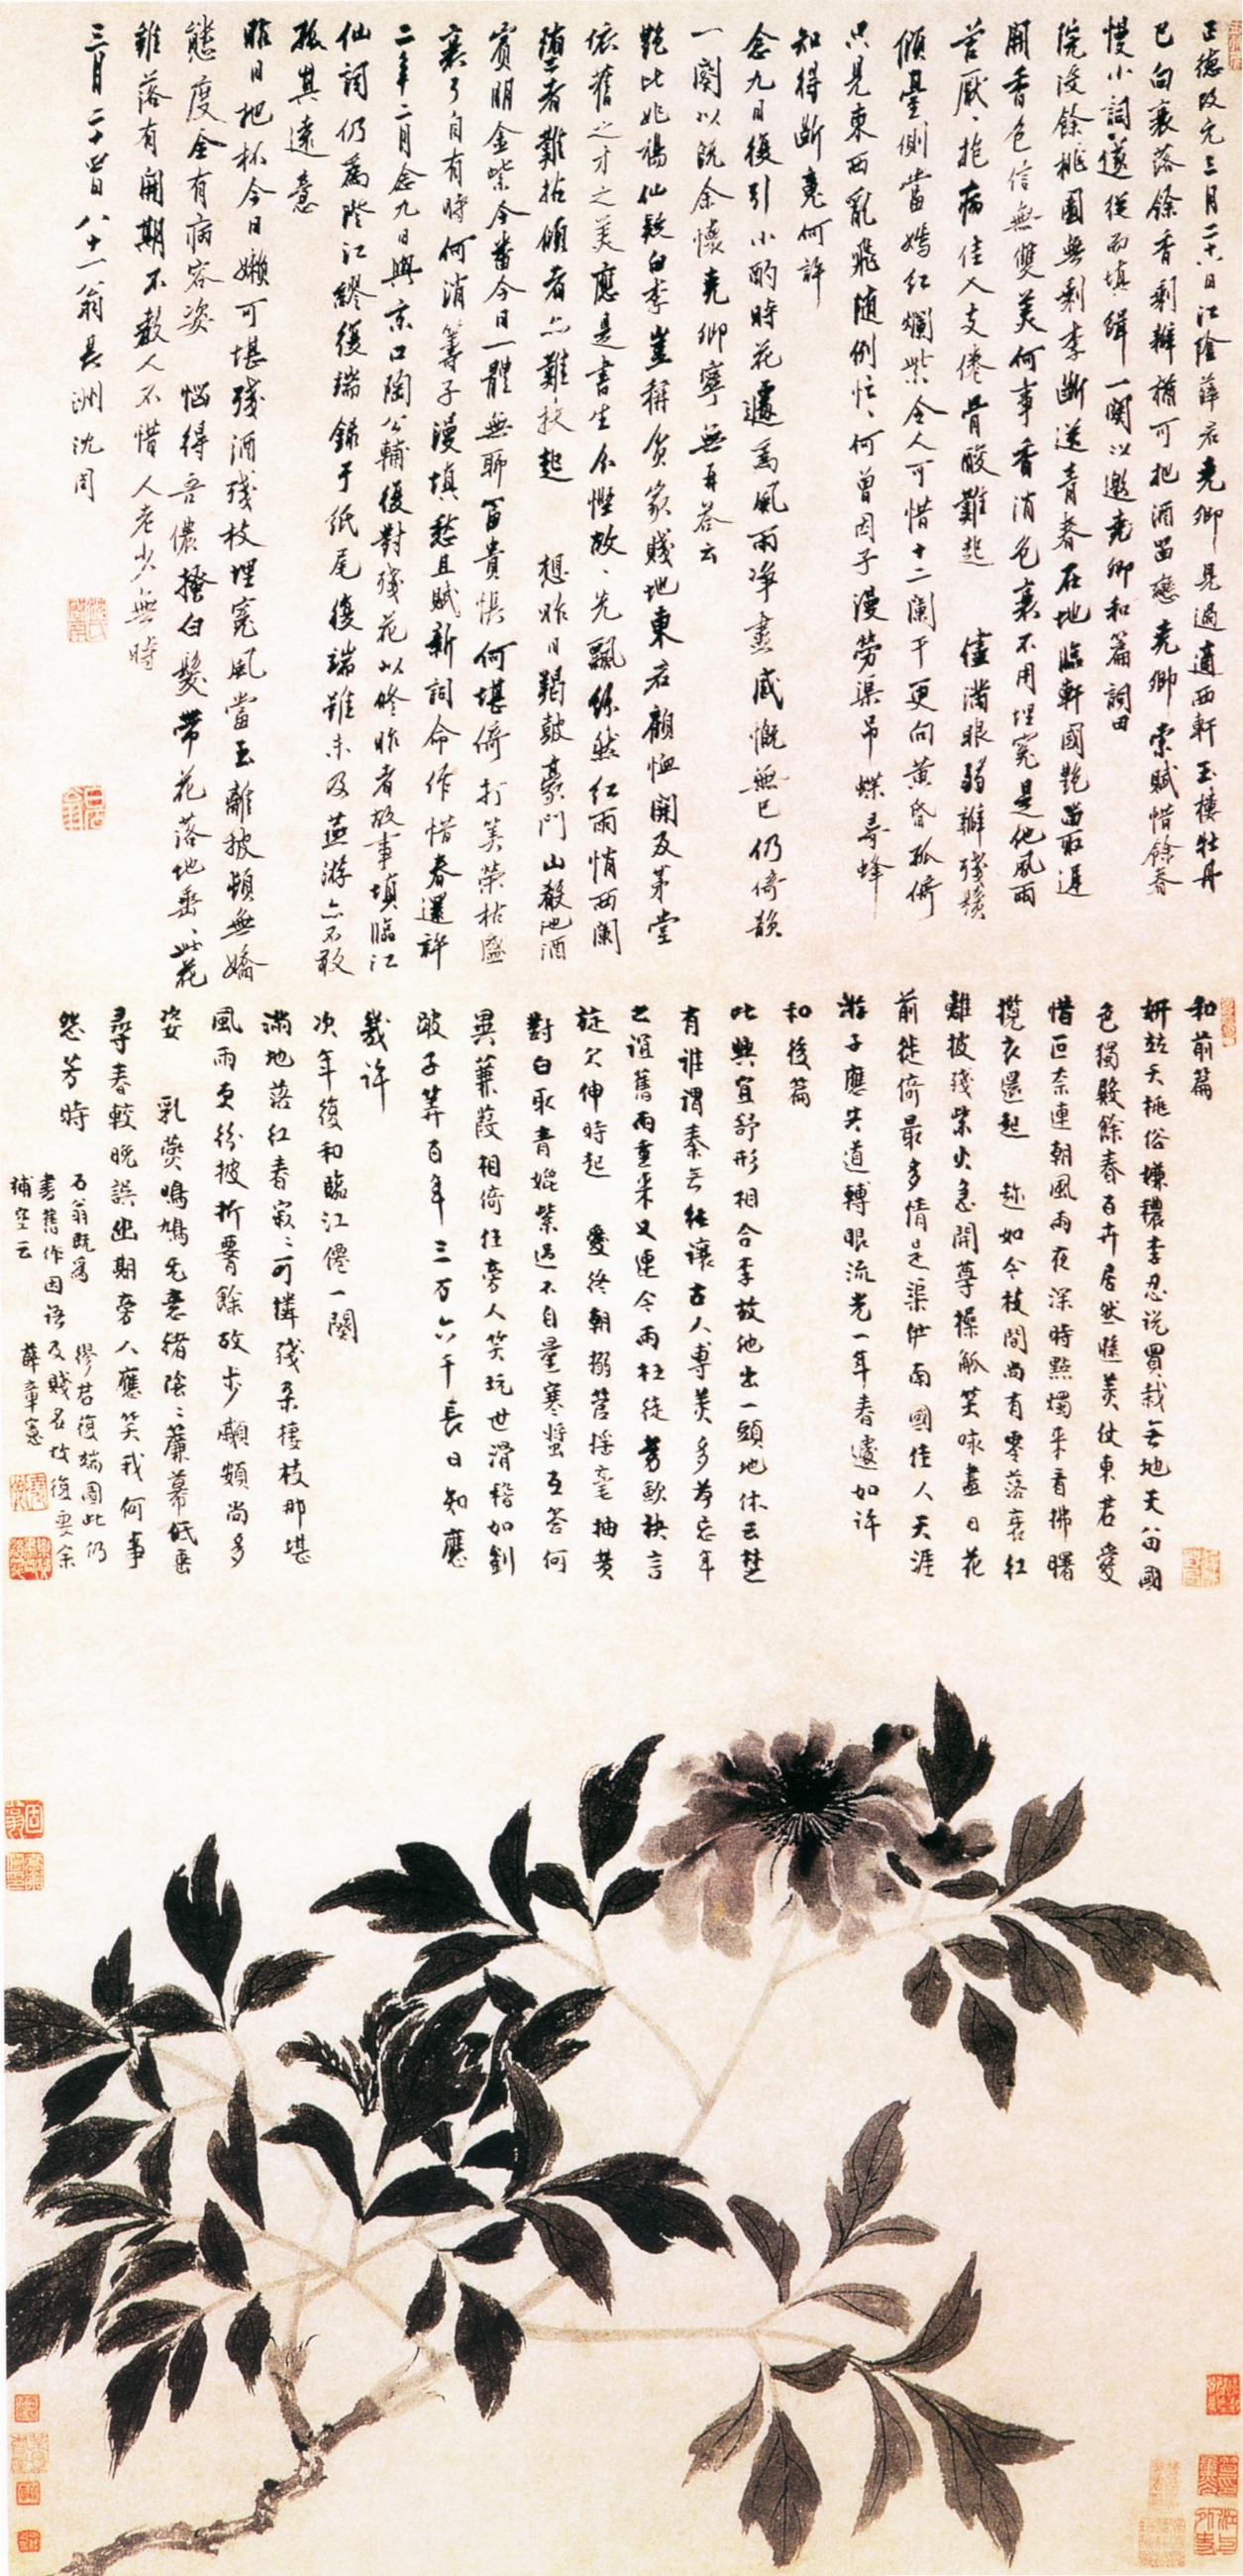 正德改元三月二十八日江陰薛君堯卿見過適西軒玉樓牡丹
已向衰落餘香剩瓣猶可把酒留戀堯卿索賦惜餘春
慢小詞遂從而填緝一闋以邀堯卿和篇詞曰
院沒餘桃園無剩李斷送青春在地臨軒國艷留取遲
開香色信無雙美何事香消色衰不用埋冤是他風雨
苦厭厭抱病佳人支倦骨酸難起 儘滿眼弱瓣殘鬚
傾臺側當嫣紅爛紫令人可惜十二闌干更向黃昏孤倚
只見東西亂飛隨例忙忙何曾因子漫勞渠吊蝶尋蜂
知得斷魂何許
念九日復引小酌時花遽為風雨凈盡感慨無已仍倚韻
一闋以既余懷堯卿寧無再答云
艷比姚楊仙疑白李豈稱貧家賤地東君顧恤開及茅堂
依舊之才之美應是書生分慳故故先飄綠然紅雨悄西闌
墮者難拈傾者亦難扶起 想昨日羯鼓豪門山殽池酒
賓朋金紫今番今日一體無聊富貴懼何堪倚打筭榮枯盛
衰了自有時何消籌子漫填愁且賦新詞命作惜春還許
二年二月念九日與京口陶公輔復對殘花以修昨者故事填臨江
仙詞仍為澄江繆復端錄于紙尾復端雖未及燕游亦不敢
孤其遠意
昨日把杯今日懶可堪殘酒殘枝埋冤風當玉離披頓無嬌
態度全有病容姿 惱得吾儂搔白髮帶花落地垂垂此花
雖落有開期不教人不惜人老少無時
三月二十四日八十一翁長洲沈周
和前篇
妍苑夭桃俗嫌穠李忍說買栽無地天留國
色獨殿餘春百卉居然睢美仗東君愛
惜叵奈連朝風雨夜深時點燭來看拂曙
攬衣還起 趂如今枝間尚有零落衰紅
離披殘紫火急開尊操觚笑咏盡日花
前徙倚最多情是渠伊南國佳人天涯
游子應共道轉眼流光一年春遽如許
和後篇
此興宜舒形相合李放他出一頭地休云楚
有誰謂秦無徃讓古人專美多為忘年
之誼舊雨重來又連今雨枉徒勞歃袂言
旋欠伸時起 愛終朝搦管揺毫抽黃
對白取青媲紫過不自量寒螿互答何
異蒹葭相倚任旁人笑玩世滑稽如劉
跛子筭百年三万六千長日知應
幾許
次年復和臨江僊一闋
滿地落紅春寂寂可憐殘朵棲枝那堪
風雨更紛披折腰餘故步顣頞尚多
姿 乳鶯鳴鳩毛意緒陰陰簾幕低垂
尋春較晚誤幽期旁人應笑我何事
怨芳時
石翁既為 繆君復端圖此仍
書舊作因語及賤名故復要余
補空云 薛章憲